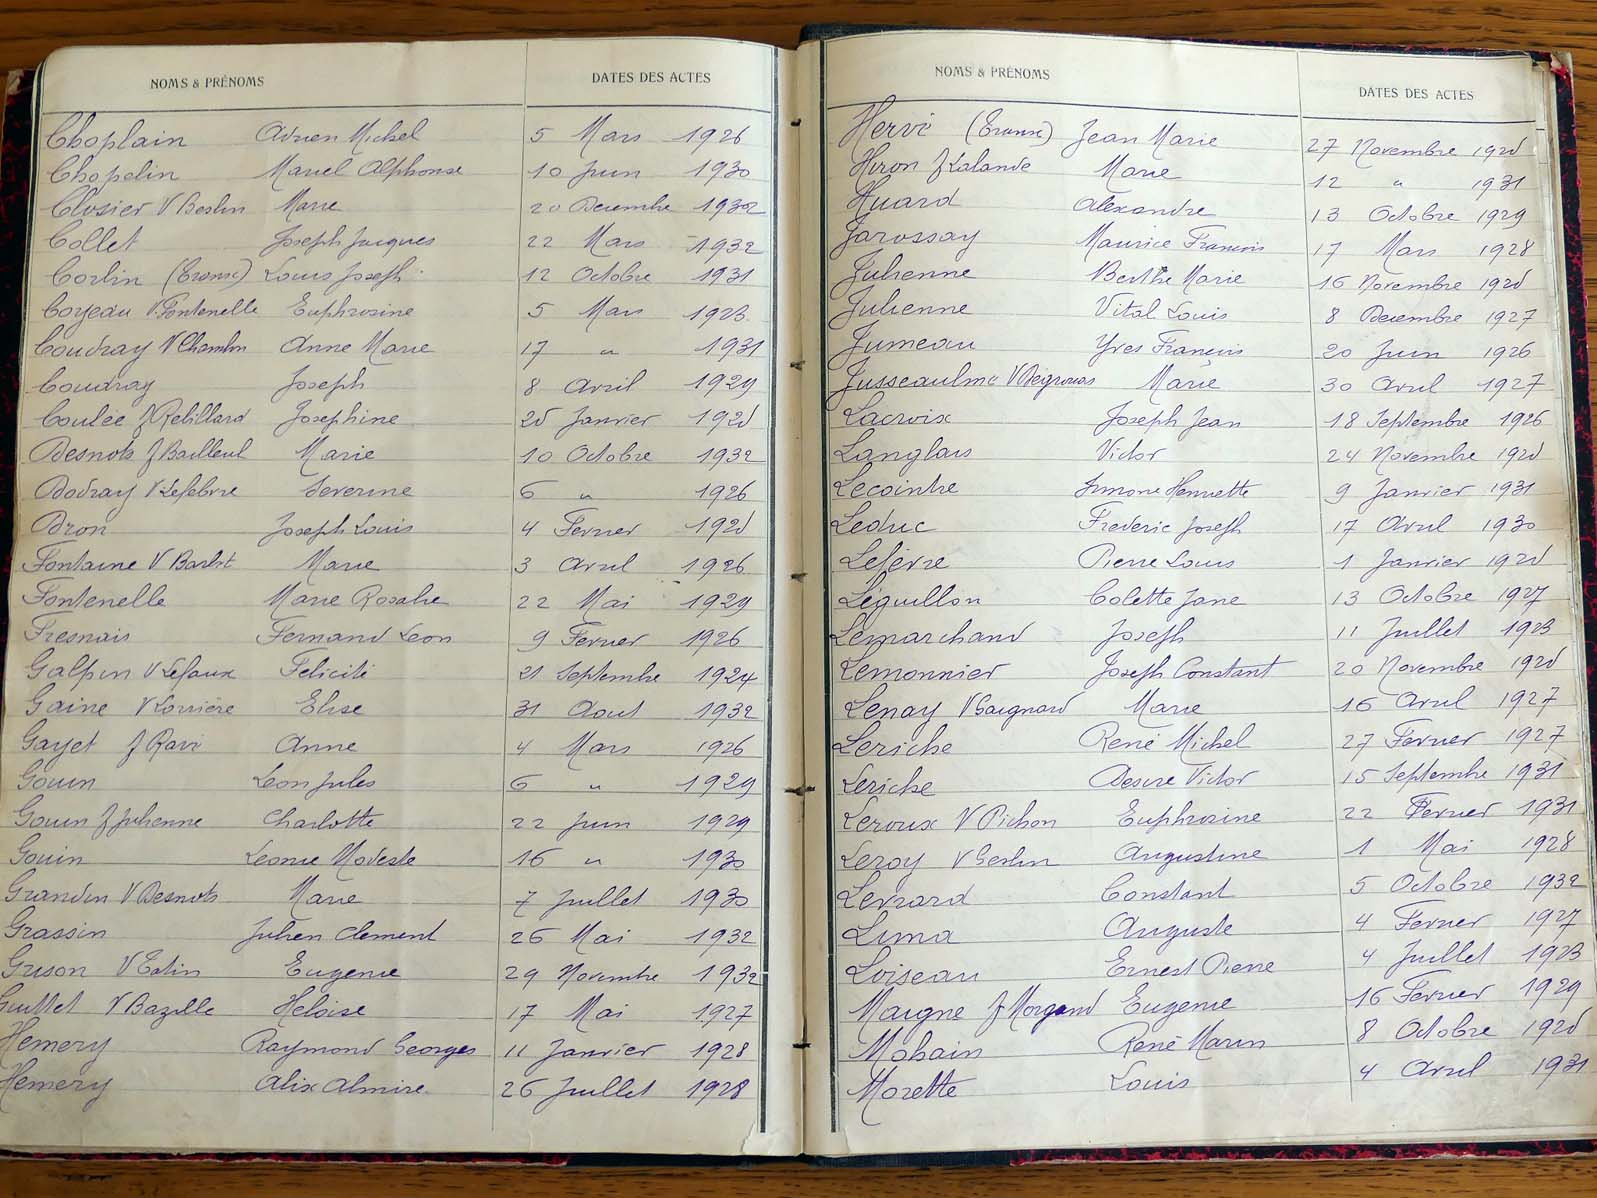 NOMS & PRÉNOMS DATES DES ACTES
Choplain Adrien Michel 5 Mars 1926
Chopelin Marcel Alphonse 10 Juin 1930
Closier V Beslin Marie 20 Decembre 1932
Collet Joseph Jacques 22 Mars 1932
Corlin (Transc) Louis Joseph 12 Octobre 1931
Coyeau V. Fontenelle Euphrosine 5 Mars 1923
Coudray V Chambon Anne Marie 17 " 1931
Coudray Joseph 8 Avril 1929
Coulée f Rebillard Josephine 25 Janvier 1925
Desnots f Bailleul Marie 10 Octobre 1932
Dodray V Lefebvre Severine 6 " 1926
Dron Joseph Louis 4 Fevrier 1925
Fontaine V Barbot Marie 3 Avril 1926
Fontenelle Marie Rosalie 22 Mai 1929
Fresnais Fernand Leon 9 Fevrier 1926
Galpin V Lefaux Felicité 21 Septembre 1924
Gaine V Lorriere Elise 31 Aout 1932
Gayet f Ravi Anne 4 Mars 1926
Gouin Leon Jules 6 " 1929
Gouin f Julienne Charlotte 22 Juin 1929
Gouin Leonie Modeste 16 " 1930
Grandin V Desnots Marie 7 Juillet 1930
Grassin Julien Clement 26 Mai 1932
Grison V Estin Eugenie 29 Novembre 1932
Guillet V Bazille Heloise 17 Mai 1927
Hemery Raymond Georges 11 Janvier 1928
Hemery Alix Almire 26 Juillet 1928
NOMS & PRÉNOMS DATES DES ACTES
Hervé (Transc) Jean Marie 27 Novembre 1925
Hiron f Lalande Marie 12 " 1931
Huard Alexandre 13 Octobre 1929
Jarossay Maurice Francois 17 Mars 1928
Julienne Berthe Marie 16 Novembre 1925
Julienne Vital Louis 8 Decembre 1927
Jumeau Yves François 20 Juin 1926
Jusseaulme V Marie 30 Avril 1927
Lacroix Joseph Jean 18 Septembre 1926
Langlais Victor 24 Novembre 1925
Lecointre Simone Henriette 9 Janvier 1931
Leduc Frederic Joseph 17 Avril 1930
Lefevre Pierre Louis 1 Janvier 1925
Léguillon Colette Jane 13 Octobre 1927
Lemarchand Joseph 11 Juillet 1923
Lemonnier Joseph Constant 20 Novembre 1925
Lenay V Gaignard Marie 16 Avril 1927
Leriche René Michel 27 Fevrier 1927
Leriche Desire Victor 15 Septembre 1931
Leroux V Pichon Euphrosine 22 Fevrier 1931
Leroy V Geslin Augustine 1 Mai 1928
Levrard Constant 5 Octobre 1932
Lima Auguste 4 Fevrier 1927
Loiseau Ernest Pierre 4 Juillet 1923
Maigne f Morgand Eugenie 16 Fevrier 1929
Mohain René Marin 8 Octobre 1925
Morette Louis 4 Avril 1931